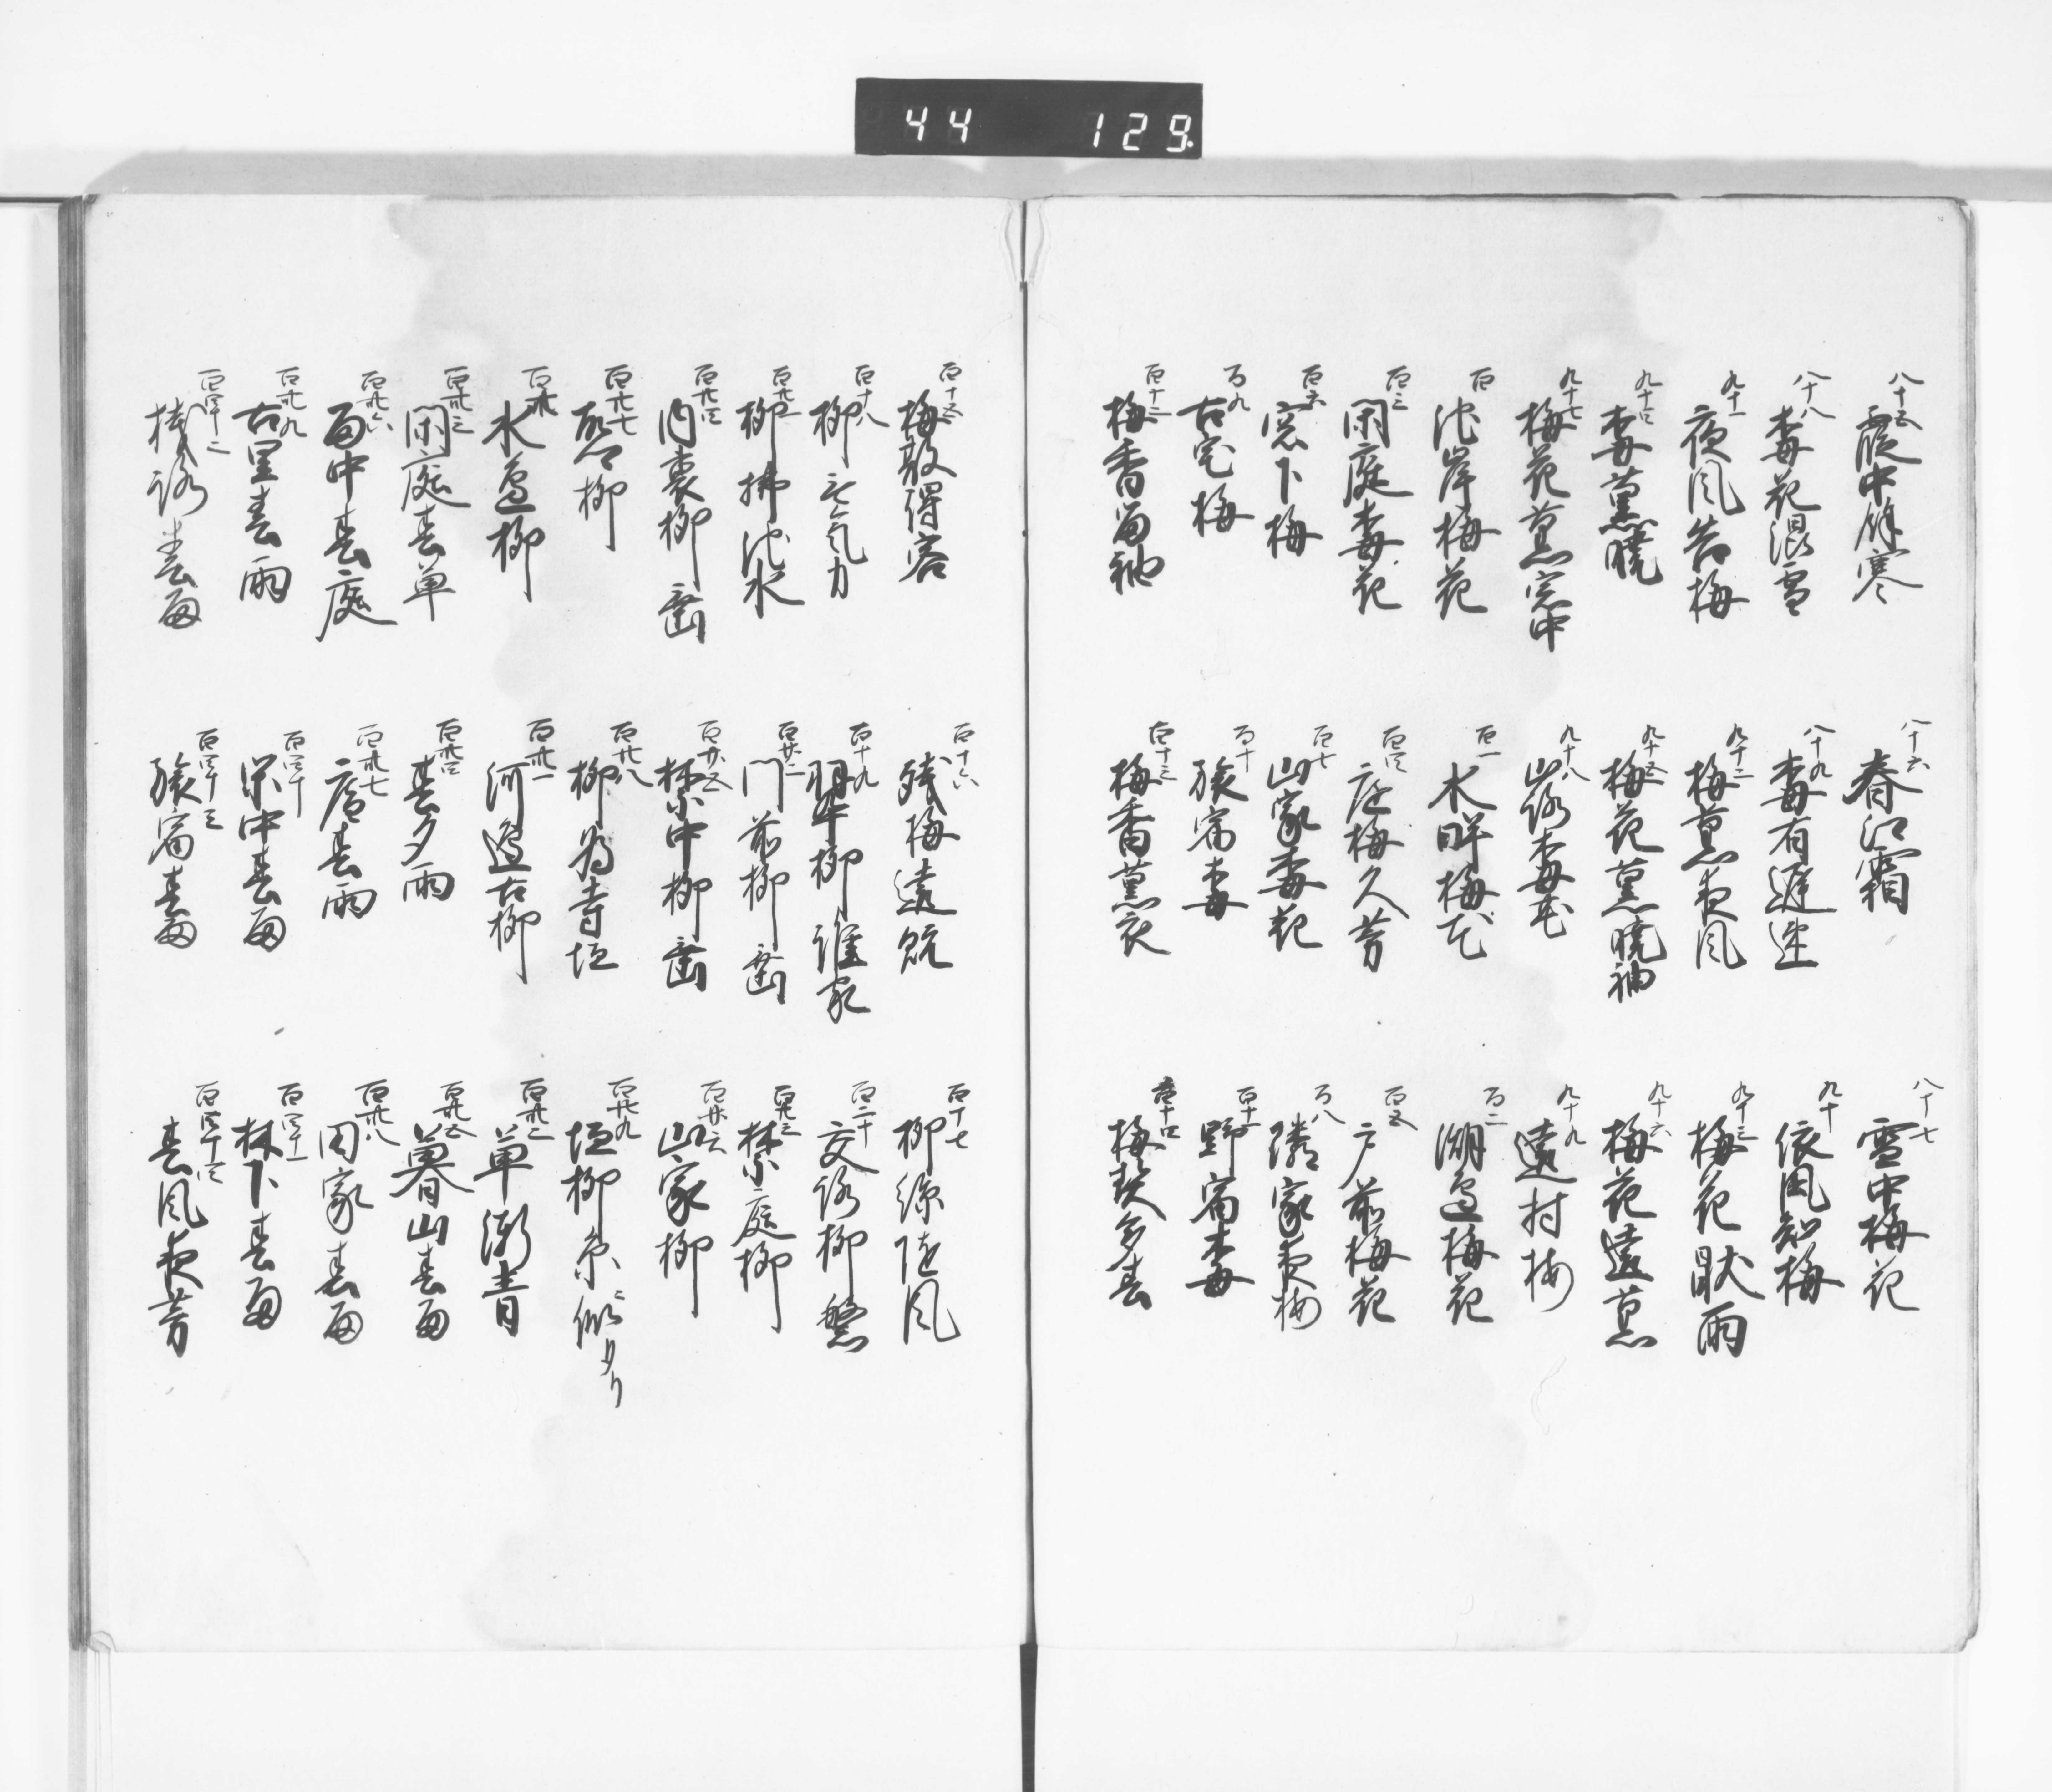 44 129
八十五 霞中余寒
八十六 春江霜
八十七 雪中梅花
八十八 梅花混雪
八十九 梅有遅速
九十 依風知梅
九十一 夜風告梅
九十二 梅薫夜風
九十三 梅花猷雨
九十四 梅薫暁
九十五 梅花薫暁袖
九十六 梅花遠薫
九十七 梅花薫窓中
九十八 山路梅花
九十九 遠村梅
百 池岸梅花
百一 水畔梅花
百二 湖辺梅花
百三 閑庭梅花
百四 庭梅久芳
百五 戸前梅花
百六 窓下梅
百七 山家梅花
百八 隣家夜梅
百九 古宅梅
百十 旅宿梅
百十一 野宿梅
百十二 梅香留袖
百十三 梅香薫衣
百十四 梅契多春
百十五 梅散得客
百十六 残梅遠
百十七 柳絲随風
百十八 柳無気力
百十九 翠柳誰家
百二十 交路柳繁
百廿一 柳払池水
百廿二 門前柳垂
百廿三 禁庭柳
百廿四 内裏柳垂
百廿五 禁中柳垂
百廿六 山家柳
百廿七 故郷柳
百廿八 柳為寺垣
百廿九 垣柳糸ニ似タリ
百卅 水辺柳
百卅一 河辺古柳
百卅二 草漸青
百卅三 閑庭春草
百卅四 春夕雨
百卅五 暮山春雨
百卅六 雨中春庭
百卅七 庵春雨
百卅八 田家春雨
百卅九 古里春雨
百四十 中春雨
百四十一 林下春雨
百四十二 路春雨
百四十三 旅宿春雨
百四十四 春風夜芳